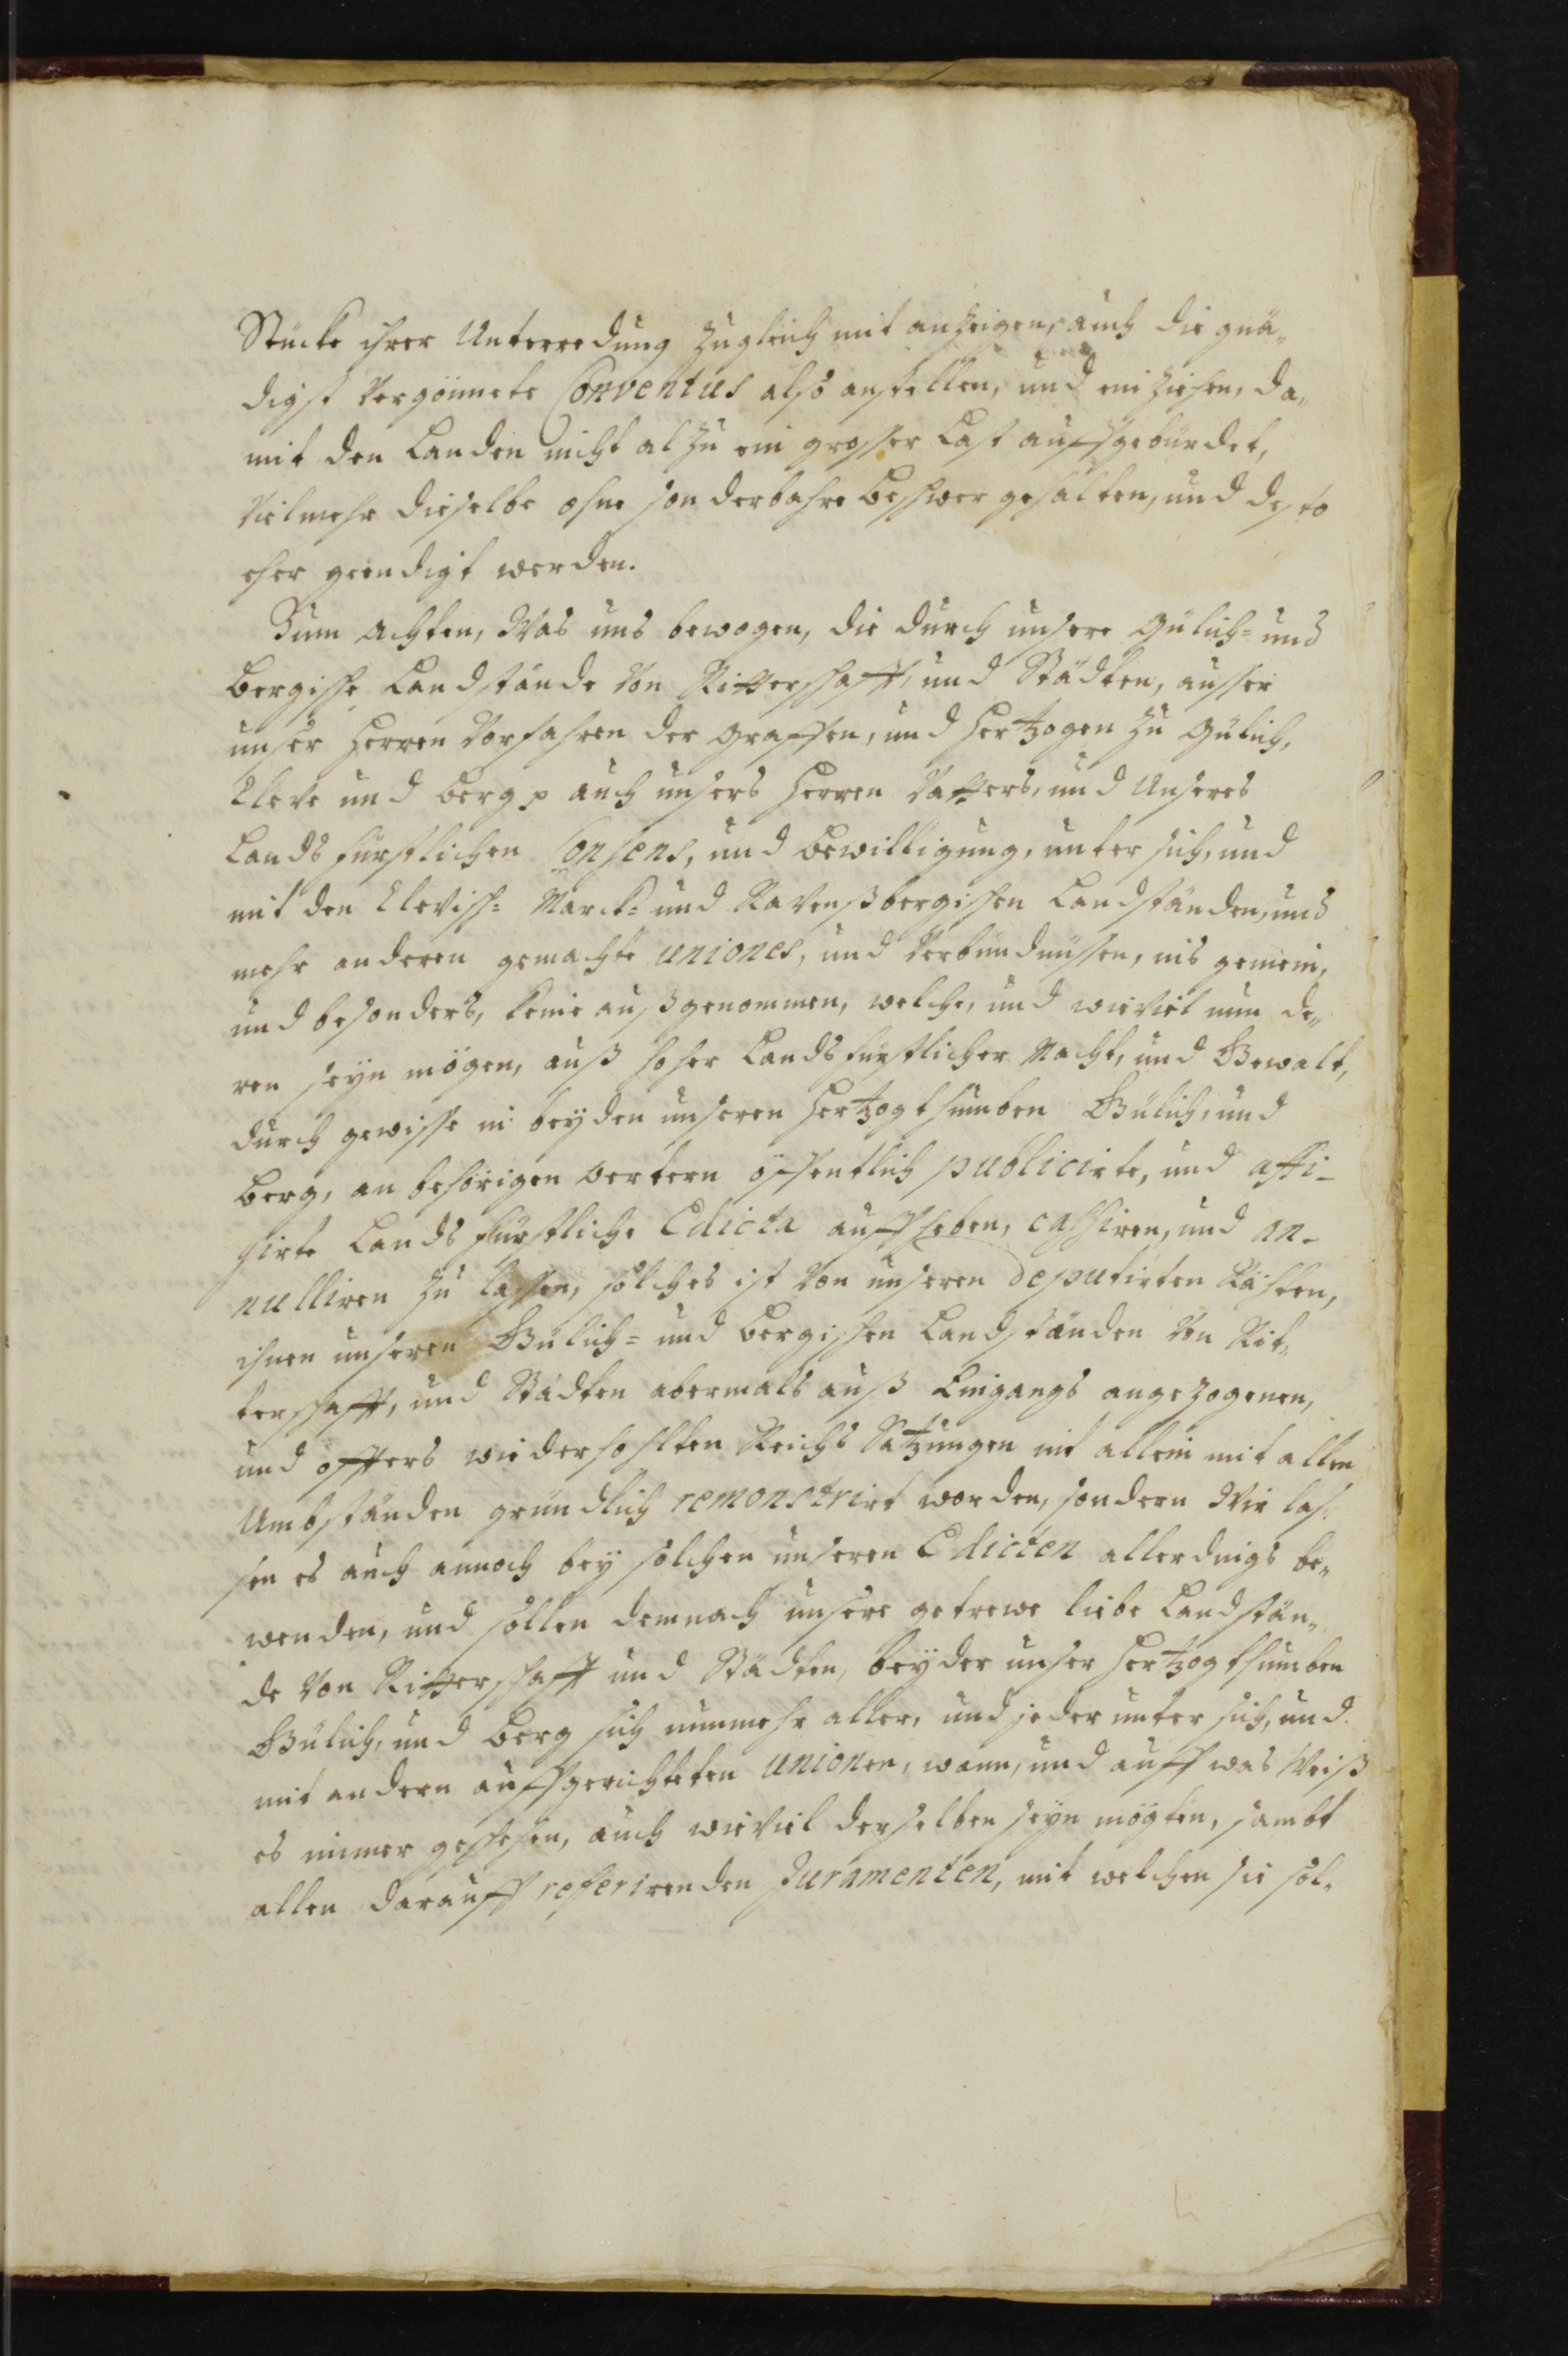 Stücke ihrer Unterredung zugleich mit anzeigen, auch die gnä„
digst Vergönnete Conventus also anstellen, und einziehen, da„
mit den Landen nicht alzu ein grosser Last auffgebürdet,
Vielmehr dieselbe ohne sonderbahre beschwer gehalten, und desto
eher geendigt werden.
Zum Achten, Was uns bewogen, die durch unsere Gülich= und
Bergische Landstände Von Ritterschafft, und Städten, ausser
unser Herren Vorfahren der Graffen, und Hertzogen zu Gülich,
Cleve und Berg p auch unsers Herren Vatters, und Unseres
Landsfürstlichen Consens, und Bewilligung, unter sich, und
mit den Clevisch= Marck= und Ravenßbergischen Landständen, und
mehr anderen gemachte uniones, und Verbündnüssen, ins gemein,
und besonders, keine außgenommen, welche, und wieviel nun de„
ren seyn mögen, auß hoher Landsfürstlicher Macht, und Gewalt,
durch gewisse in beyden unseren Hertzogthumben Gülich, und
Berg, an behörigen Oertern öffentlich publicirte, und affi-
girte Landsfürstliche Edicta auffheben, cassiren, und an-
nulliren zu lassen, solches ist Von unseren deputirten Räthen,
ihnen unseren Gülich= und Bergischen Landständen Von Rit„
terschafft, und Städten abermals auß Eingangs angezogenen,
und öffters wiederhohlten Reichs Satzungen nit allein mit allen
Umbständen gründlich remonstrirt worden, sondern Wir las„
sen es auch annoch bey solchen unseren Edicten allerdings be„
wenden, und sollen demnach unsere getrewe liebe Landstän„
de Von Ritterschafft und Städten, beyder unser Hertzogthumben
Gülich, und Berg sich nunmehr aller, und jeder unter sich, und
mit andern auffgerichteten unionen, wann, und auff was Weiß
es immer geschehen, auch wieviel derselben seyn mögten, sambt
allen darauff referirenden Juramenten, mit welchen sie sol„